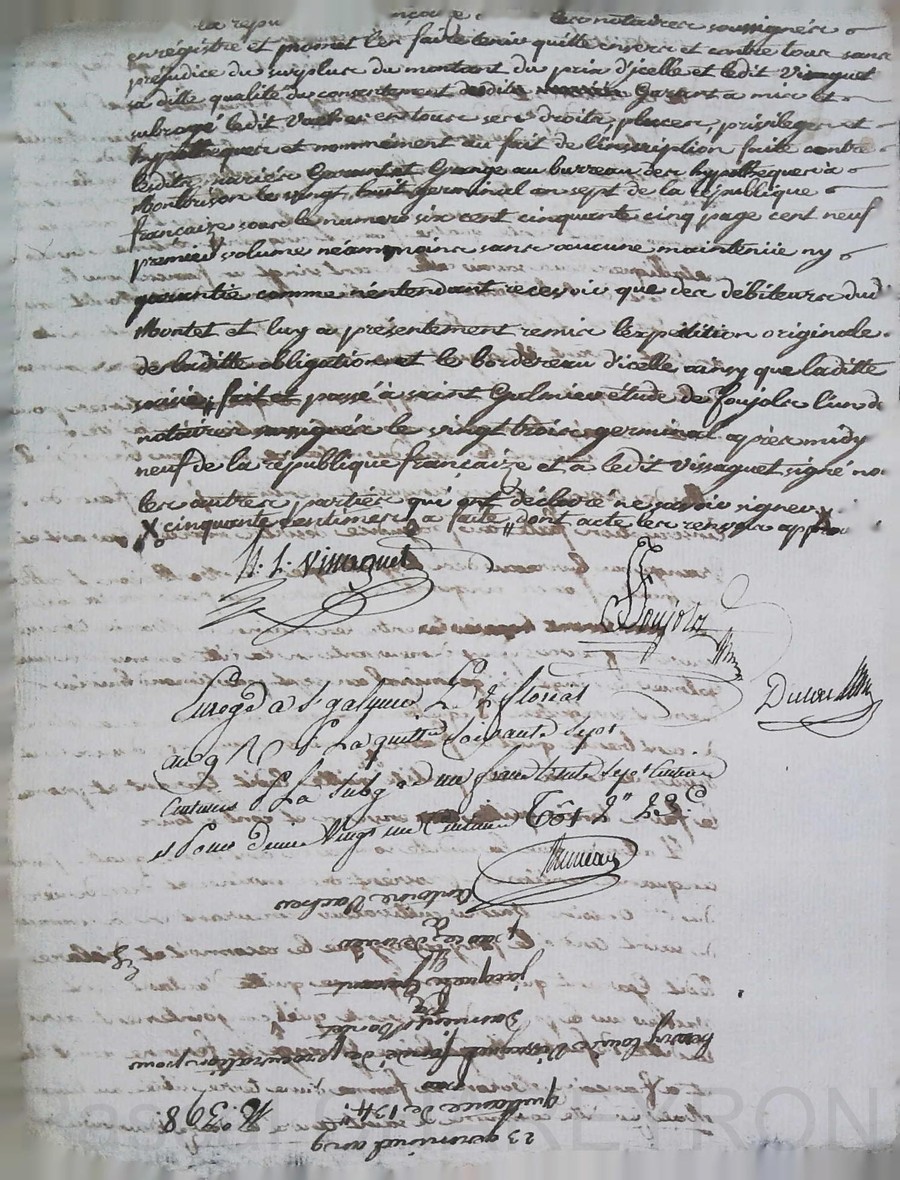 la répu les notaires soussignés
enregistré et promet l'en faire tenir quitte envers et contre tous sans
préjudice du surplus du montant du prix d'icelle et ledit Vissaguet
sa ditte qualité du consentement desdits Garant a mis et
subrogé ledit Vacher en tous ses droits, places, privileges et
hypothèques et nommément au fait de l'inscription faite contre
lesdits mariés Garant et Grange au bureau des hypothèques à
Montbrison le vingt huit germinal an sept de la république
française sous le numero six cent cinquante cinq page cent neuf
premier volume néammoins sans aucune maintenüe ny
garantie comme n'entendant recevoir que des débiteurs dud
Montet et luy a présentement remis l'expédition originale
de laditte obligation et le bordereau d'icelle ainsy que laditte
saisie, fait et passé à saint Galmier étude de Foujols l'un d
notaires soussignés le vingt trois germinal après midy
neuf de la république française et a ledit Vissaguet signé no
les autres parties qui ont déclaré ne savoir signer
X cinquante centimes a faite, dont acte les renvois app
H. L. Vissaguet
Foujols
Enregé a St galmier Le floreal
an 9 La quittce soixante sept
centimes La Subg un franc
et Pour Vingt un Centimes
23 germinal an 9
quittance de 134
N.o 398
henry louis Vissaguet fondé de procuration pour
Montet
à
jacques Garant
à
Antoine Vacher